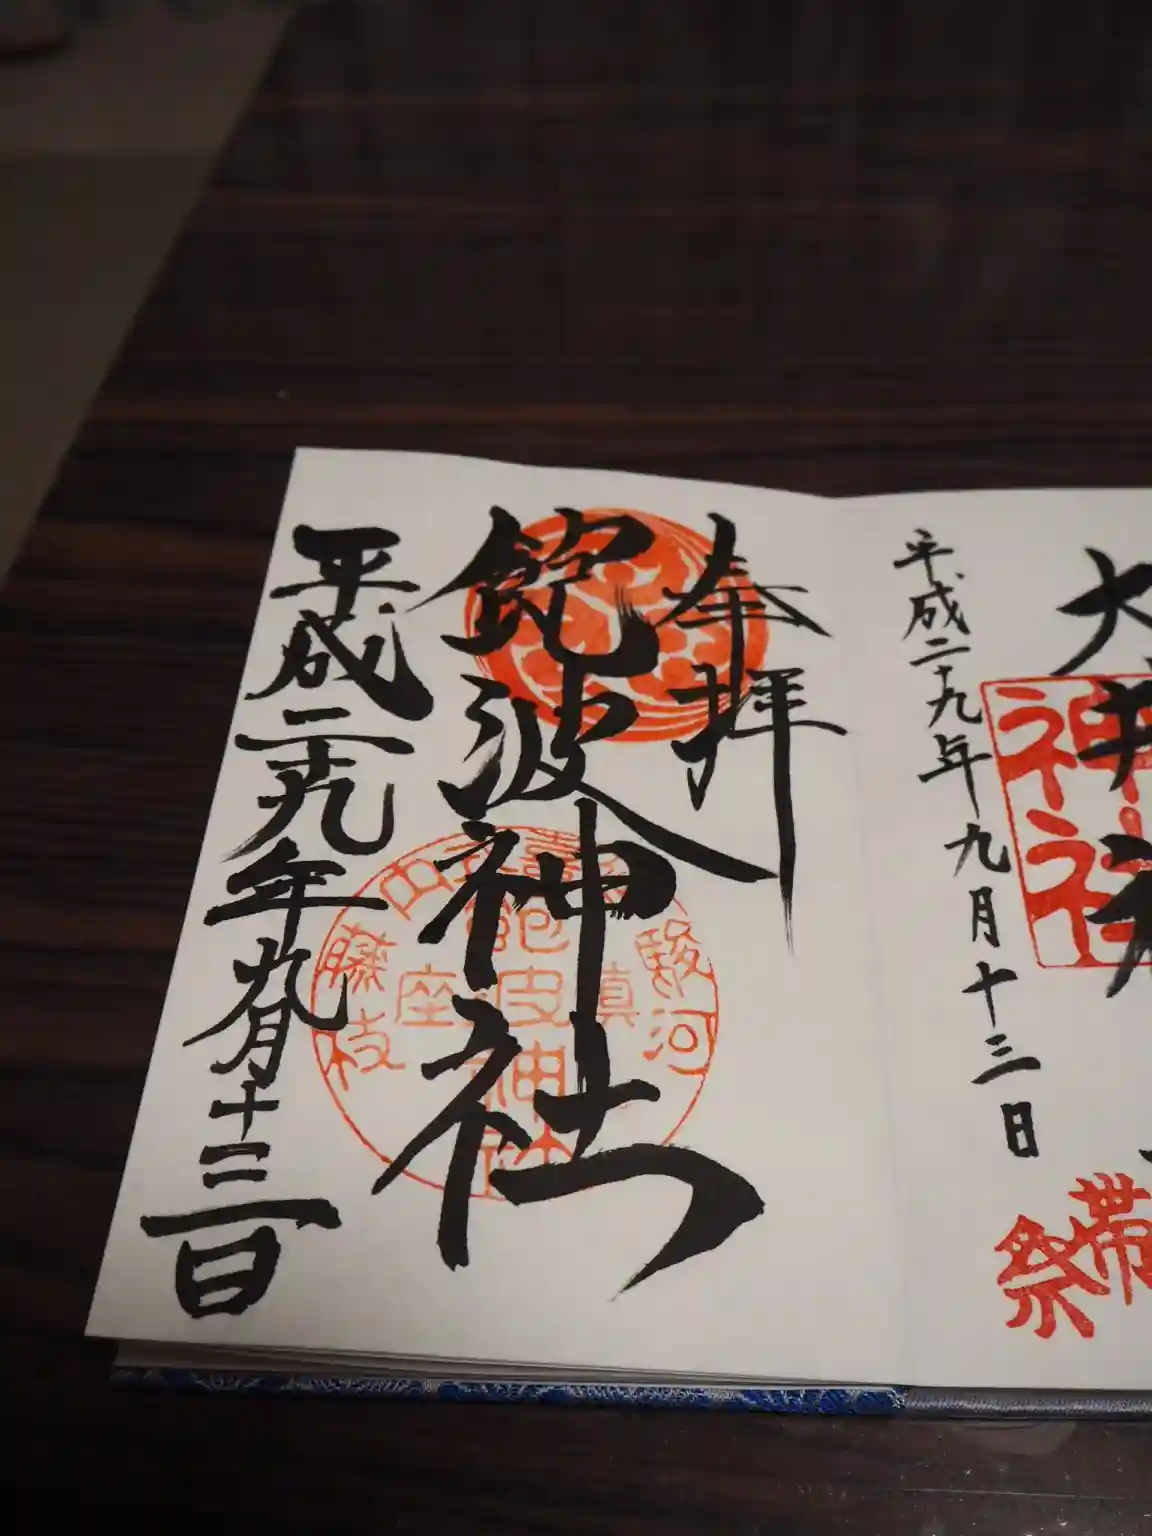 大井神
神社
平成二十九年九月十三日
帯
祭
奉拝
飽波神社
駿河
鎮座
飽波神社
藤枝
平成二十九年九月十三日